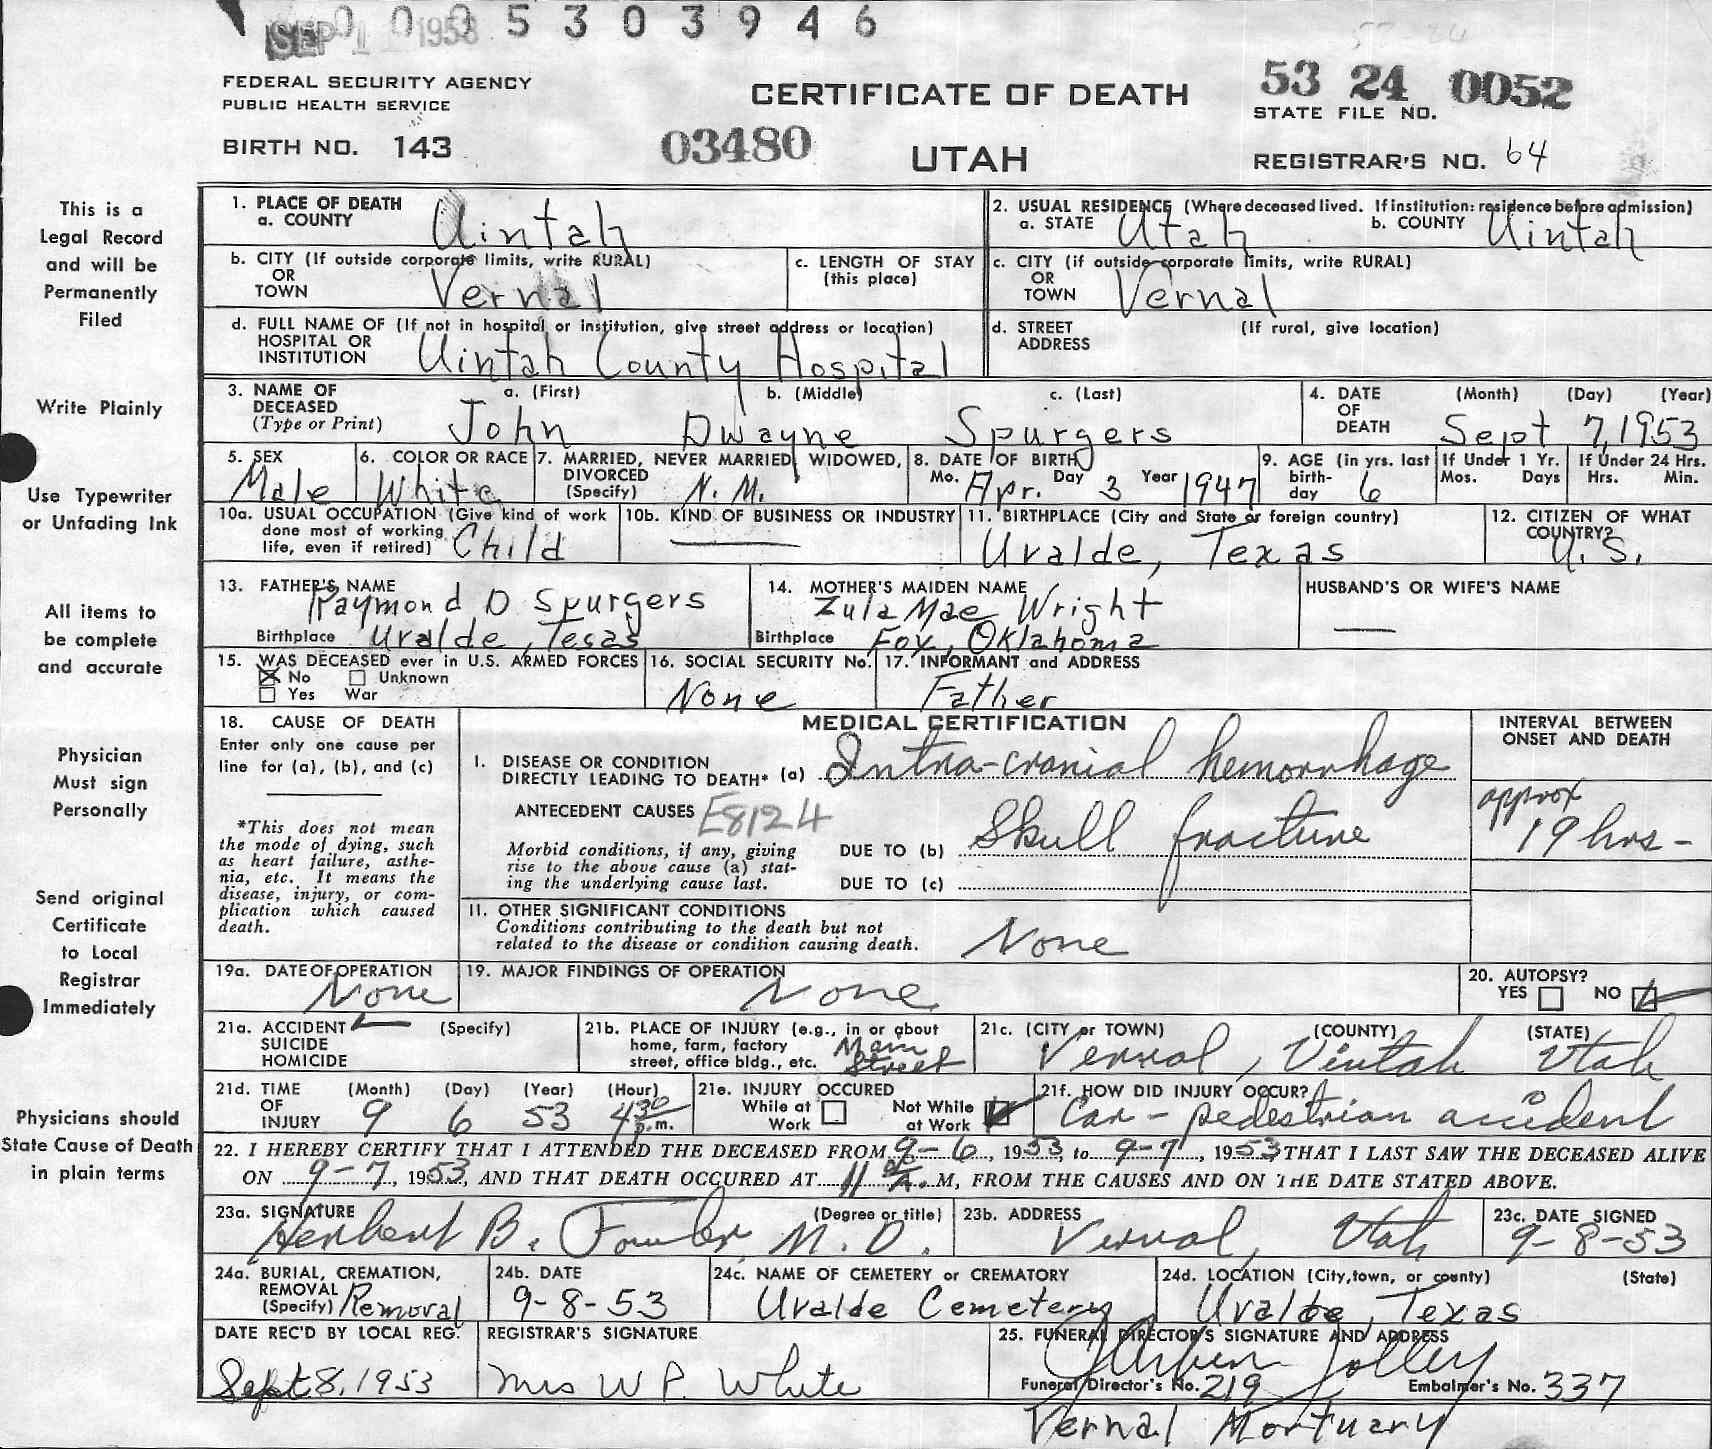 SEP 1 1953 0 0 0 5 3 0 3 9 4 6
FEDERAL SECURITY AGENCY
PUBLIC HEALTH SERVICE
BIRTH NO. 143
03480
CERTIFICATE OF DEATH
UTAH
53 24 0052
STATE FILE NO.
REGISTRAR'S NO. 64
This is a
Legal Record
and will be
Permanently
Filed
Write Plainly
Use Typewriter
or Unfading Ink
All items to
be complete
and accurate
Physician
Must sign
Personally
Send original
Certificate
to Local
Registrar
Immediately
Physicians should
State Cause of Death
in plain terms
1. PLACE OF DEATH
a. COUNTY Uintah
2. USUAL RESIDENCE (Where deceased lived. If institution: residence before admission)
a. STATE Utah b. COUNTY Uintah
b. CITY (If outside corporate limits, write RURAL)
OR
TOWN Vernal
c. LENGTH OF STAY
(this place)
c. CITY (if outside corporate limits, write RURAL)
OR
TOWN Vernal
d. FULL NAME OF (If not in hospital or institution, give street address or location)
HOSPITAL OR
INSTITUTION Uintah County Hospital
d. STREET (If rural, give location)
ADDRESS
3. NAME OF DECEASED (Type or Print)
a. (First) b. (Middle) c. (Last)
John Dwayne Spurgers
4. DATE OF DEATH (Month) (Day) (Year)
Sept 7, 1953
5. SEX
Male
6. COLOR OR RACE
White
7. MARRIED, NEVER MARRIED, WIDOWED,
DIVORCED
(Specify) N. M.
8. DATE OF BIRTH
Mo. Apr. Day 3 Year 1947
9. AGE (in yrs. last
birth-
day 6
If Under 1 Yr.
Mos. Days
If Under 24 Hrs.
Hrs. Min.
10a. USUAL OCCUPATION (Give kind of work
done most of working
life, even if retired) Child
10b. KIND OF BUSINESS OR INDUSTRY
11. BIRTHPLACE (City and State or foreign country)
Uvalde, Texas
12. CITIZEN OF WHAT
COUNTRY?
U.S.
13. FATHER'S NAME
Raymond D Spurgers
Birthplace Uvalde, Tesas
14. MOTHER'S MAIDEN NAME
Zula Mae Wright
Birthplace Fox, Oklahoma
HUSBAND'S OR WIFE'S NAME
15. WAS DECEASED ever in U.S. ARMED FORCES
No Unknown
Yes War
16. SOCIAL SECURITY No.
None
17. INFORMANT and ADDRESS
Father
18. CAUSE OF DEATH
Enter only one cause per
line for (a), (b), and (c)
*This does not mean
the mode of dying, such
as heart failure, asthe-
nia, etc. It means the
disease, injury, or com-
plication which caused
death.
MEDICAL CERTIFICATION
I. DISEASE OR CONDITION
DIRECTLY LEADING TO DEATH* (a) Intra-cranial hemorrhage
ANTECEDENT CAUSES E8124
Morbid conditions, if any, giving
rise to the above cause (a) stat-
ing the underlying cause last.
DUE TO (b) Skull fracture
DUE TO (c)
INTERVAL BETWEEN
ONSET AND DEATH
approx
19 hrs -
11. OTHER SIGNIFICANT CONDITIONS
Conditions contributing to the death but not
related to the disease or condition causing death.
None
19a. DATE OF OPERATION
None
19. MAJOR FINDINGS OF OPERATION
None
20. AUTOPSY?
YES NO
21a. ACCIDENT (Specify)
SUICIDE
HOMICIDE
21b. PLACE OF INJURY (e.g., in or about
home, farm, factory
street, office bldg., etc. Main Street
21c. (CITY or TOWN) (COUNTY) (STATE)
Vernal, Uintah Utah
21d. TIME OF INJURY (Month) (Day) (Year) (Hour)
9 6 53 4 30 p.m.
21e. INJURY OCCURED
While at Work Not While at Work
21f. HOW DID INJURY OCCUR?
Car - pedestrian accident
22. I HEREBY CERTIFY THAT I ATTENDED THE DECEASED FROM 9-6, 1953, to 9-7, 1953, THAT I LAST SAW THE DECEASED ALIVE
ON 9-7, 1953, AND THAT DEATH OCCURED AT 11 A. M, FROM THE CAUSES AND ON THE DATE STATED ABOVE.
23a. SIGNATURE (Degree or title)
Herbert B. Fowler, M.D.
23b. ADDRESS
Vernal, Utah
23c. DATE SIGNED
9-8-53
24a. BURIAL, CREMATION,
REMOVAL
(Specify) Removal
24b. DATE
9-8-53
24c. NAME OF CEMETERY or CREMATORY
Uvalde Cemetery
24d. LOCATION (City, town, or county) (State)
Uvalde, Texas
DATE REC'D BY LOCAL REG.
Sept 8, 1953
REGISTRAR'S SIGNATURE
Mrs W P. White
25. FUNERAL DIRECTOR'S SIGNATURE AND ADDRESS
Jolley
Funeral Director's No. 219 Embalmer's No. 337
Vernal Mortuary